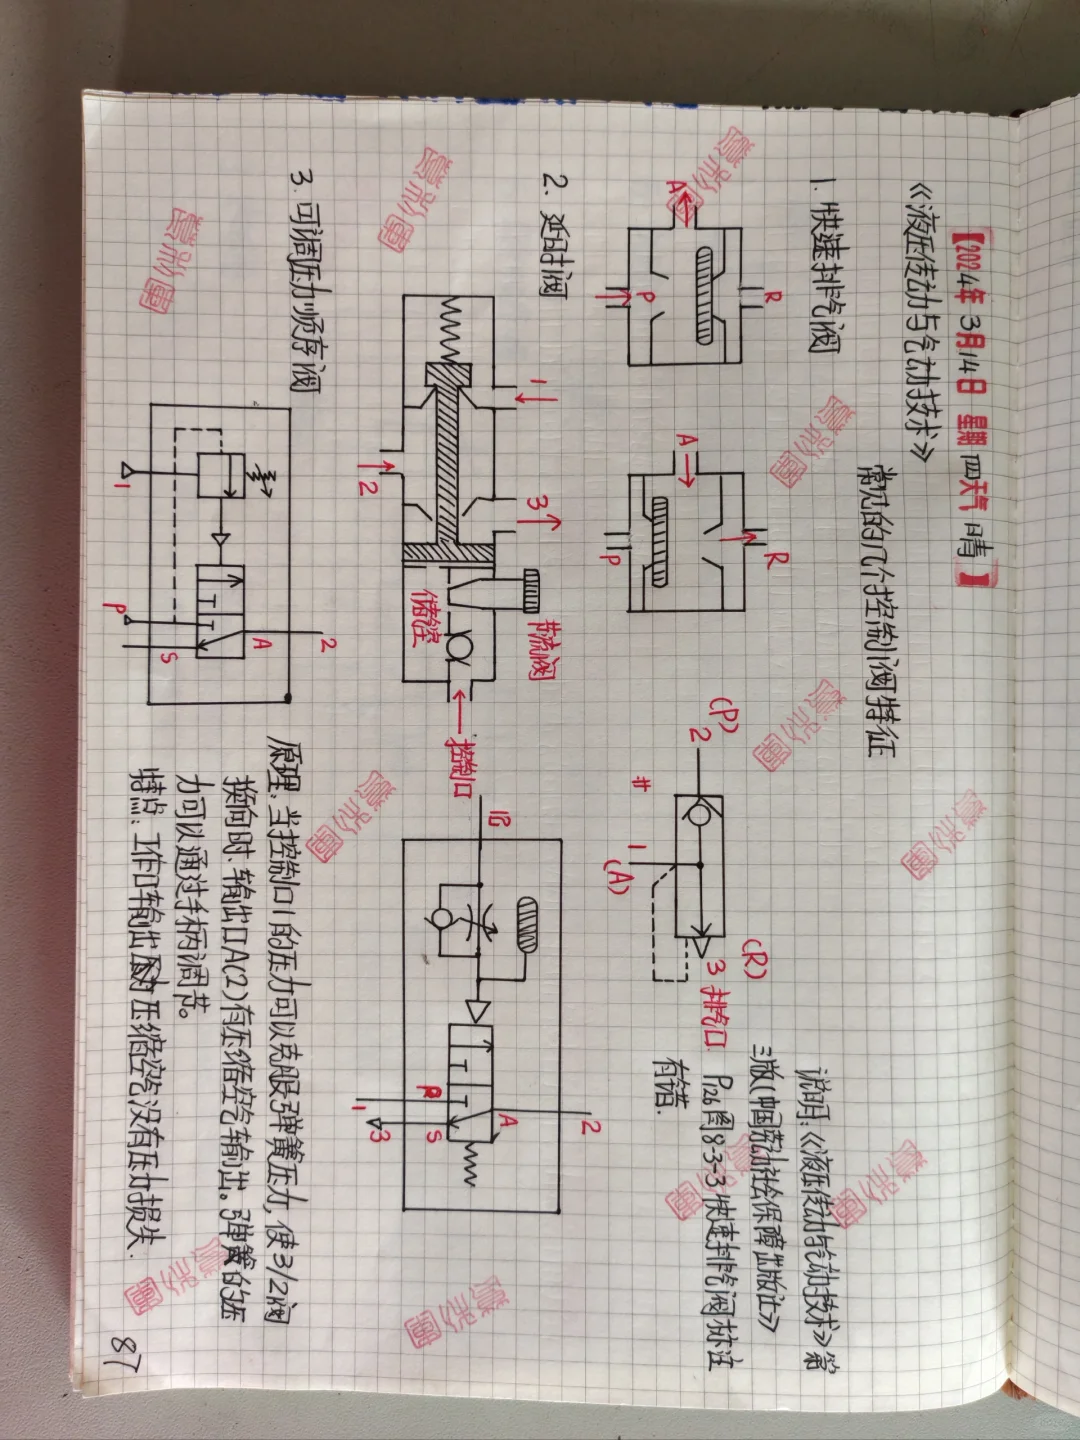 【2024年3月14日 星期四 天气 晴】
《液压传动与气动技术》
常见的几个控制阀特征
1. 快速排气阀
A
P
R
A
R
P
(P)
2
#
1
(A)
(R)
3 排气口
说明:《液压传动与气动技术》第
三版(中国劳动社会保障出版社)
P126 图8-3-3快速排气阀标注
有错.
2. 延时阀
1
2
3
节流阀
储气
控制口
12
R
S
A
1
3
2
3. 可调压力顺序阀
1
P
S
A
2
原理:当控制口1的压力可以克服弹簧压力,使3/2阀
换向时.输出口A(2)有压缩空气输出。弹簧的压
力可以通过手柄调节。
特点:工作口输出的压缩空气没有压力损失.
87